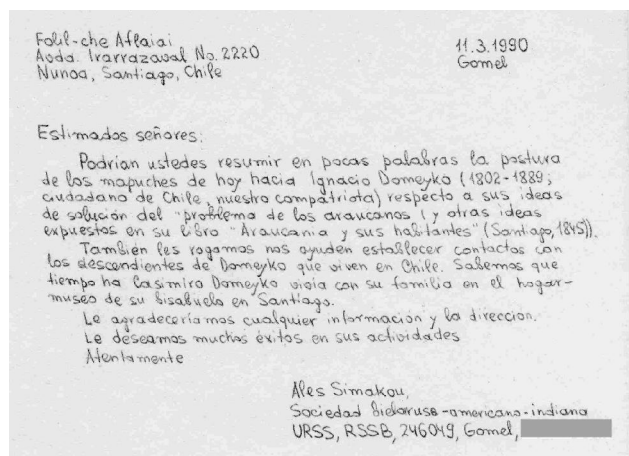 Folil-che Aflaiai
Avda. Irarrazaval No. 2220
Nunoa, Santiago, Chile
11.3.1990
Gomel
Estimados señores:
Podrían ustedes resumir en pocas palabras la postura
de los mapuches de hoy hacia Ignacio Domeyko (1802-1889;
ciudadano de Chile, nuestro compatriota) respecto a sus ideas
de solución del "problema de los araucanos (y otras ideas
expuestos en su libro "Araucania y sus habitantes" (Santiago, 1845)).
También les rogamos nos ayuden establecer contactos con
los descendientes de Domeyko que viven en Chile. Sabemos que
tiempo ha Casimiro Domeyko vivía con su familia en el hogar-
museo de su bisabuelo en Santiago.
Le agradeceríamos cualquier información y la dirección.
Le deseamos muchos éxitos en sus actividades
Atentamente
Ales Simakou,
Sociedad Bielarusa-americano-indiana
URSS, RSSB, 246049, Gomel,